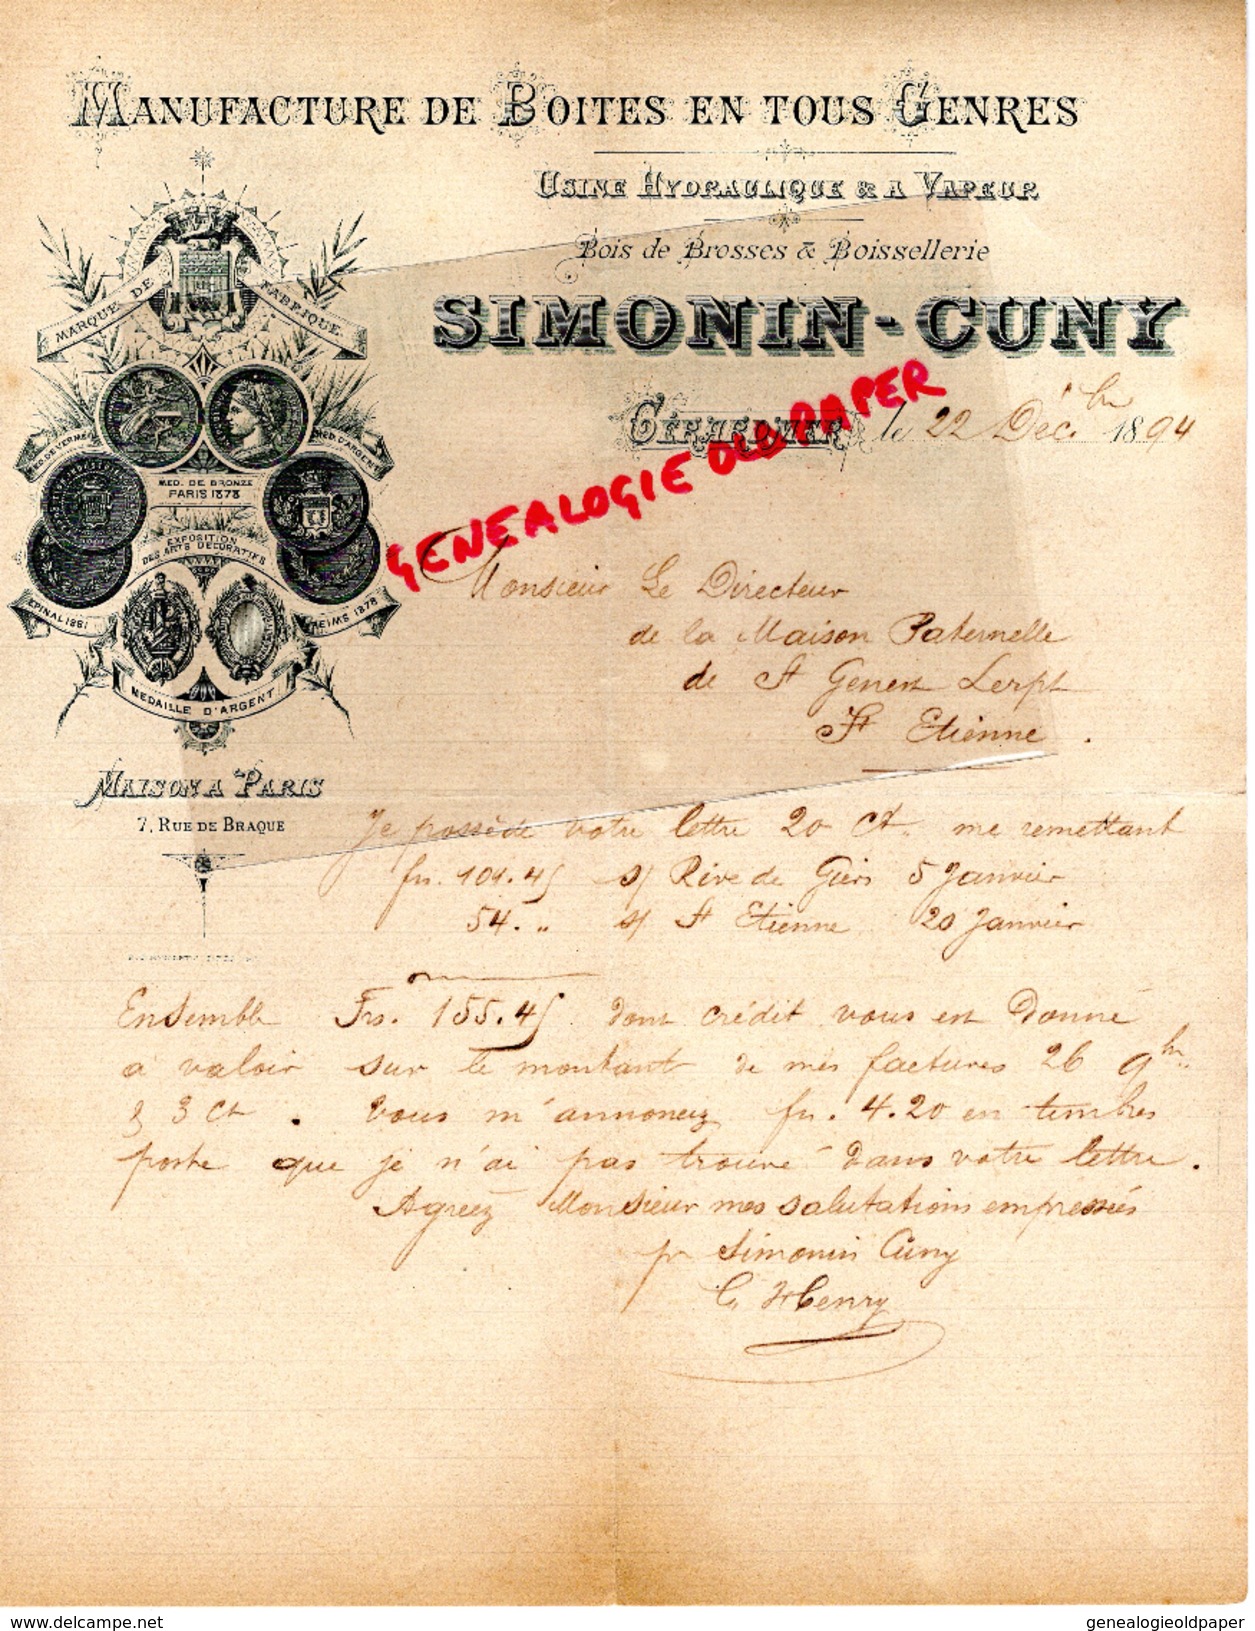 MANUFACTURE DE BOITES EN TOUS GENRES
USINE HYDRAULIQUE & A VAPEUR
Bois de Brosses & Boissellerie
SIMONIN-CUNY
GÉRARDMER, le 22 Déc.bre 1894
GENEALOGIE OLD PAPER
MARQUE DE FABRIQUE
MED. DE VERMEIL
MED. D'ARGENT
MED. DE BRONZE
PARIS 1878
EXPOSITION
DES ARTS DECORATIFS
EPINAL 1881
REIMS 1876
MEDAILLE D'ARGENT
MAISON A PARIS
7, RUE DE BRAQUE
Monsieur Le Directeur
de la Maison Paternelle
de St Genest Lerpt
St Etienne.
Je possède votre lettre 20 Ct. me remettant
frs. 101.45 s/ Rive de Giers 5 Janvier
54. " s/ St Etienne 20 Janvier
Ensemble Frs. 155.45 dont crédit vous en donné
a valoir sur le montant de mes factures 26 9bre
& 3 Ct. Vous m'annoncez frs. 4.20 en timbres
poste que je n'ai pas trouvé dans votre lettre.
Agréez Monsieur mes salutations empressées
pr Simonin Cuny
C. Henry
delcampe.net
genealogieoldpaper